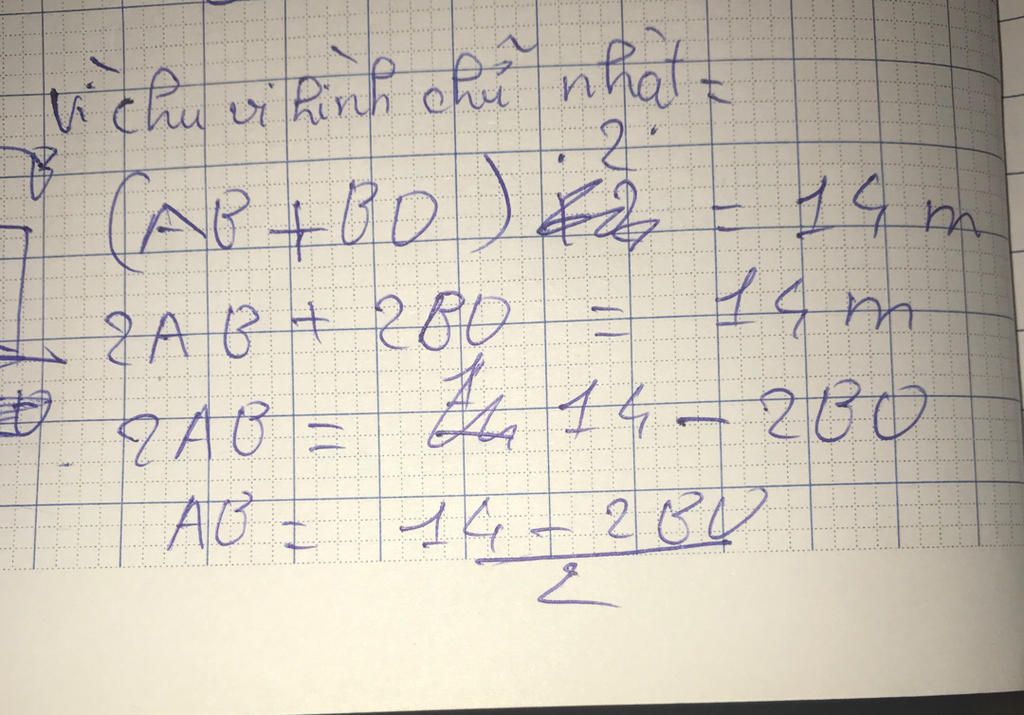 Vì chu vi hình chữ nhật =
(AB + BD) . 2 = 14 m
2AB + 2BD = 14 m
2AB = 14 - 2BD
AB = 14 - 2BD
2